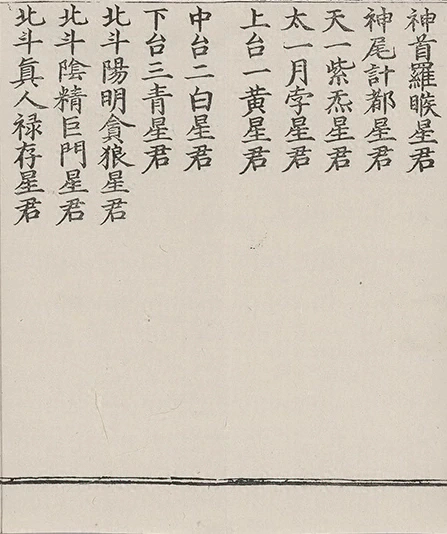 神首羅睺星君
神尾計都星君
天一紫炁星君
太一月孛星君
上台一黄星君
中台二白星君
下台三青星君
北斗陽明貪狼星君
北斗陰精巨門星君
北斗真人禄存星君